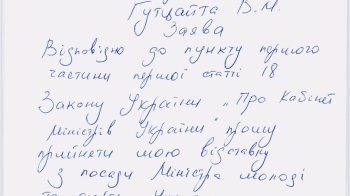 Гутцайта В.М.
Заява
Відповідно до пункту першого
частини першої статті 18
Закону України „Про Кабінет
Міністрів України" прошу
прийняти мою відставку
з посади Міністра молоді